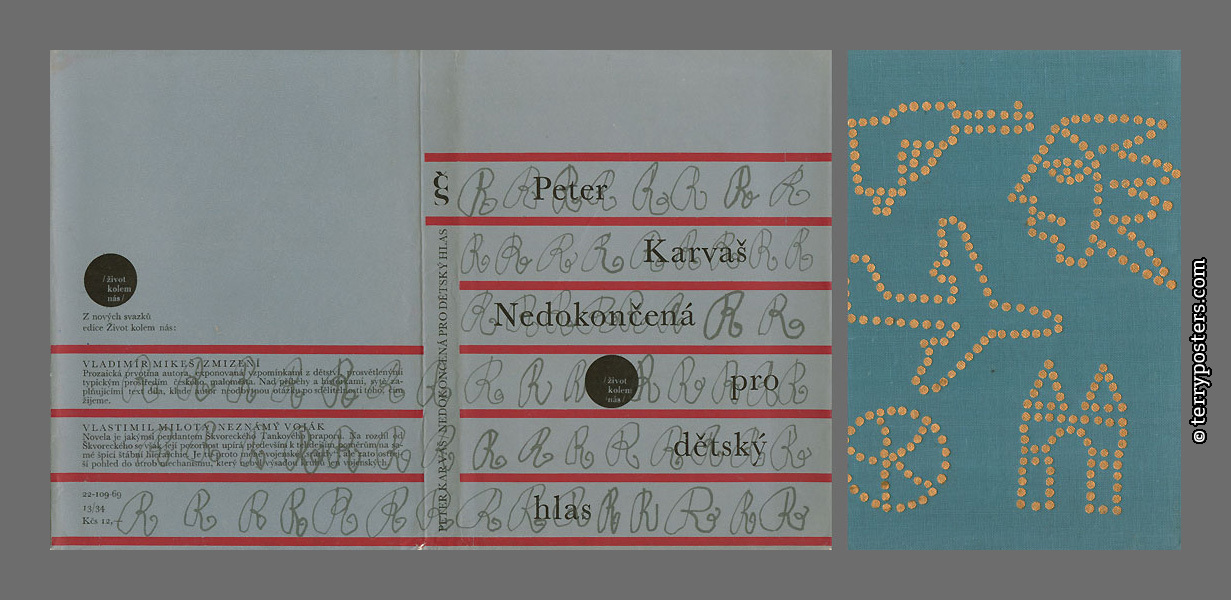 / život
kolem
nás /
Z nových svazků
edice Život kolem nás:
VLADIMÍR MIKEŠ/ZMIZENÍ
Prozaická prvotina autora, exponovaná vzpomínkami z dětství, prosvětlenými
typickým prostředím českého maloměsta. Nad příběhy a historkami, sytě za-
plňujícími text díla, klade autor neodbytnou otázku po sdělitelnosti toho, čím
žijeme.
VLASTIMIL MILOTA/NEZNÁMÝ VOJÁK
Novela je jakýmsi pendantem Škvoreckého Tankového praporu. Na rozdíl od
Škvoreckého se však její pozornost upírá především k tehdejším poměrům na sa-
mé špici štábní hierarchie. Je to proto méně vojenské
ší pohled do útrob mechanismu, který nebyl výsadou kruhů jen vojenských.
22-109-69
13/34
Kčs 12,-
š
PETER KARVAŠ / NEDOKONČENÁ PRO DĚTSKÝ HLAS
R R R R R R R R
Peter
R R R R R R R R
Karvaš
Nedokončená
R R
/ život
kolem
nás /
pro
dětský
hlas
© terryposters.com